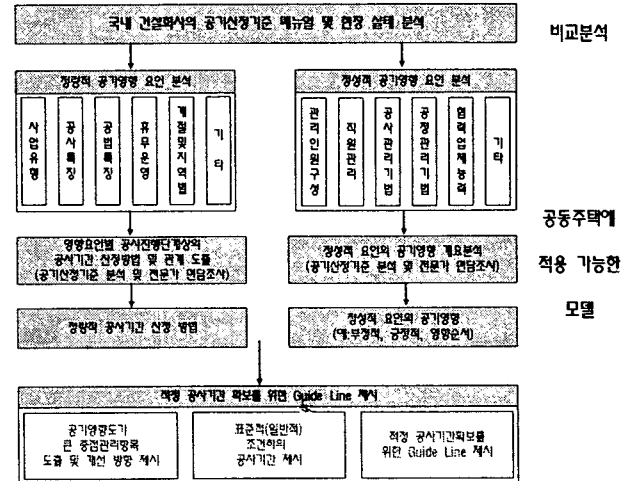 국내 건설회사의 공기산정기준 메뉴얼 및 현장 실태 분석
비교분석
정량적 공기영향 요인 분석
사업유형
공사특징
공법특징
휴무운영
계절및지역별
기타
정성적 공기영향 요인 분석
관리인원구성
직원관리
공사관리기법
공정관리기법
협력업체능력
기타
영향요인별 공사진행단계상의
공사기간 산정방법 및 관계 도출
(공기산정기준 분석 및 전문가 면담조사)
정성적 요인의 공기영향 개요분석
(공기산정기준 분석 및 전문가 면담조사)
공동주택에
적용 가능한
모델
정량적 공사기간 산정 방법
정성적 요인의 공기영향
(예:부정적, 긍정적, 영향순서)
적정 공사기간 확보를 위한 Guide Line 제시
공기영향도가
큰 중점관리항목
도출 및 개선 방향 제시
표준적(일반적)
조건하의
공사기간 제시
적정 공사기간확보를
위한 Guide Line 제시